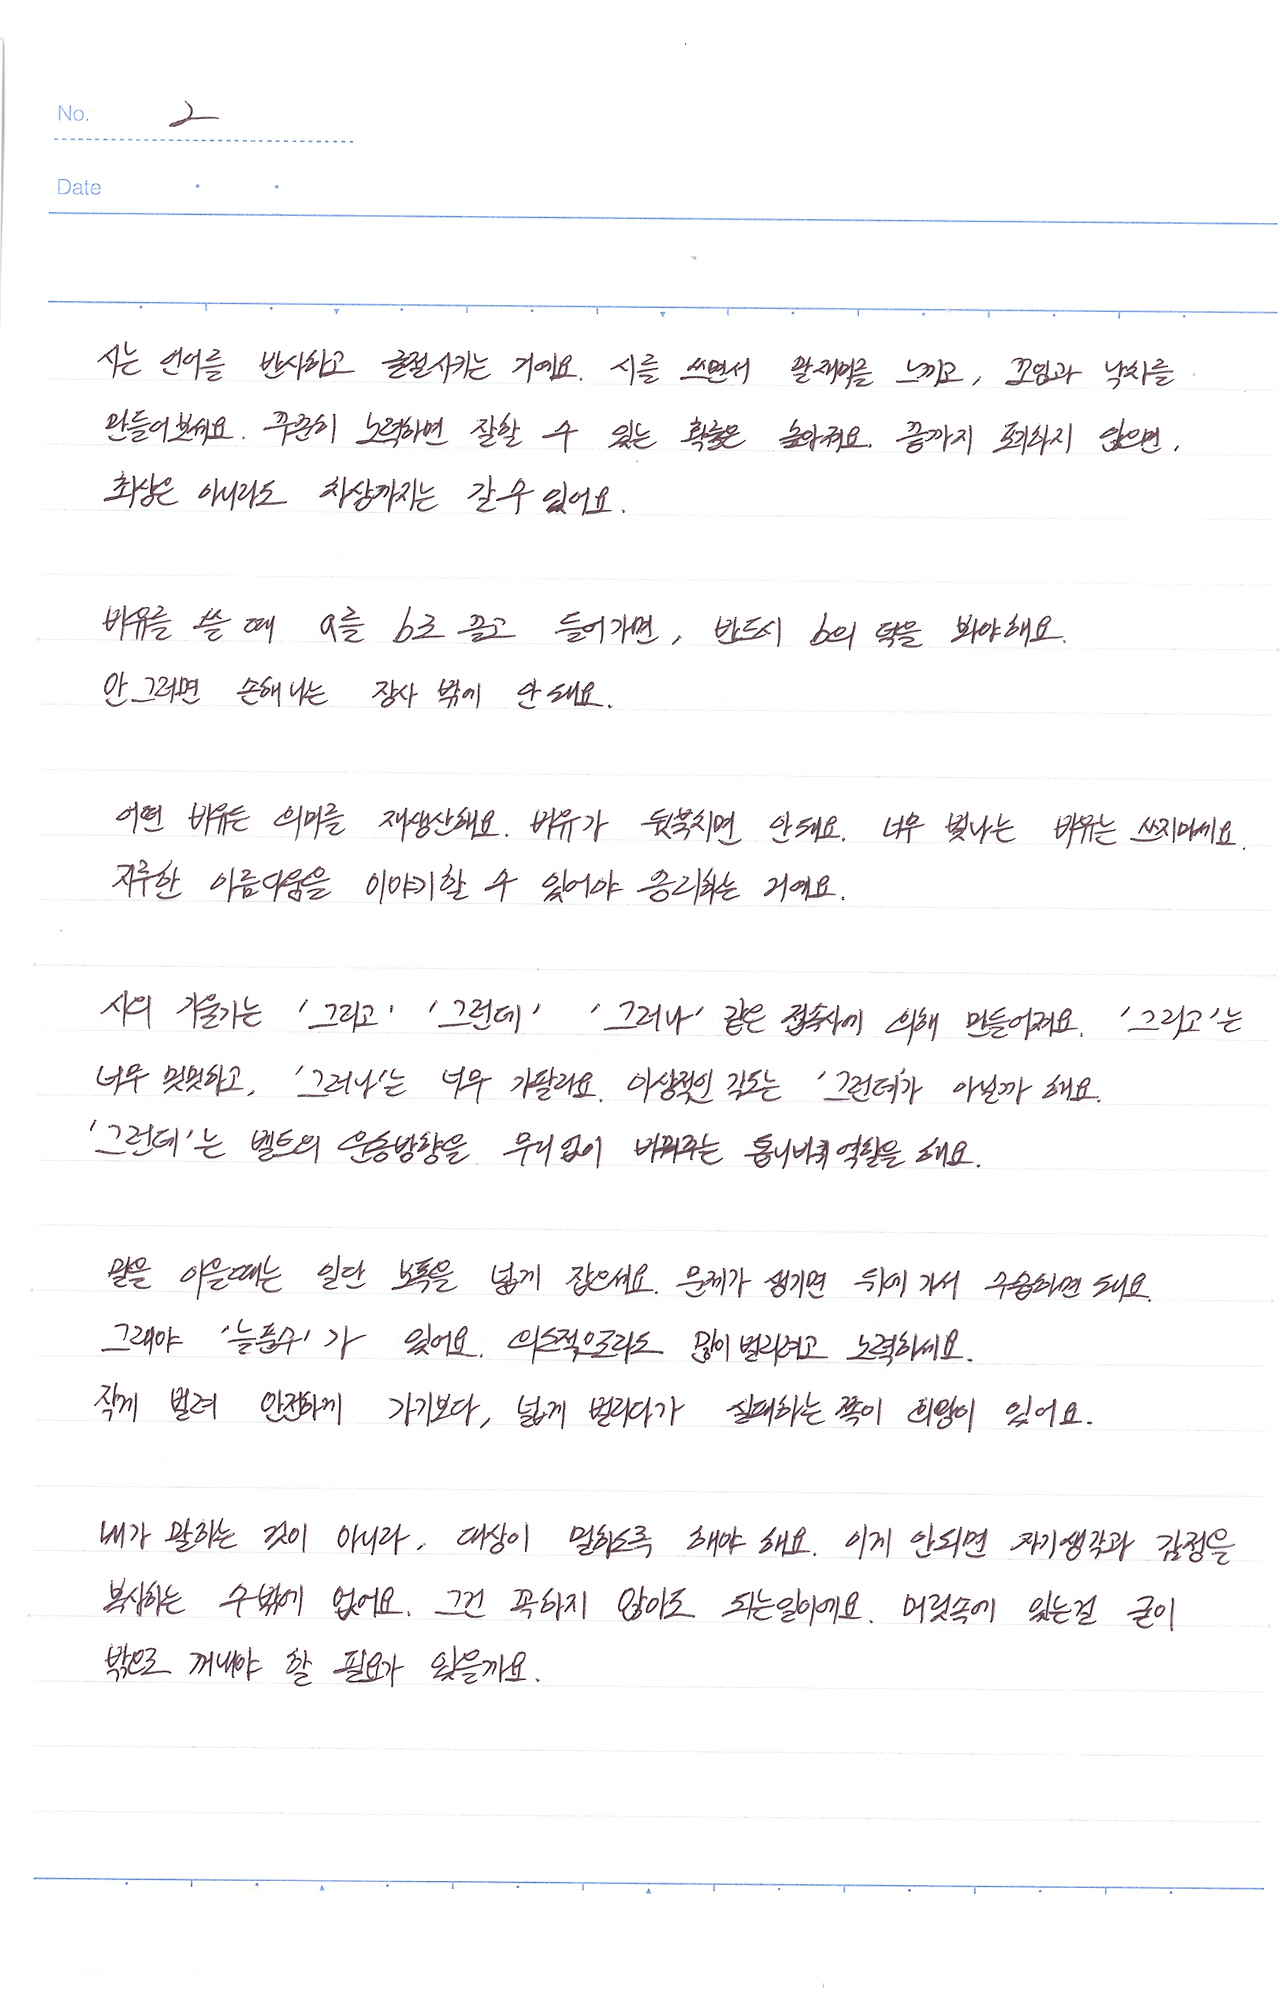 No. 2
Date
시는 언어를 반사하고 굴절시키는 거예요. 시를 쓰면서 말재미를 느끼고, 꼬임과 낙차를
만들어보세요. 꾸준히 노력하면 잘할 수 있는 확률은 높아져요. 끝까지 포기하지 않으면,
최상은 아니라도 차상까지는 갈 수 있어요.
비유를 쓸 때 a를 b로 끌고 들어가면, 반드시 b의 덕을 봐야해요.
안 그러면 손해나는 장사 밖에 안 돼요.
어떤 비유든 의미를 재생산해요. 비유가 뒷북치면 안돼요. 너무 빛나는 비유는 쓰지마세요.
지루한 아름다움을 이야기할 수 있어야 승리하는 거예요.
시의 기울기는 '그리고' '그런데' '그러나' 같은 접속사에 의해 만들어져요. '그리고'는
너무 밋밋하고, '그러나'는 너무 가팔라요. 이상적인 각도는 '그런데'가 아닐까 해요.
'그런데'는 벨트의 운동방향을 무리없이 바꿔주는 톱니바퀴 역할을 해요.
말을 이을때는 일단 보폭을 넓게 잡으세요. 문제가 생기면 뒤에 가서 수습하면 돼요.
그래야 '늘품수'가 있어요. 의도적으로라도 많이 벌리려고 노력하세요.
작게 벌려 안전하게 가기보다, 넓게 벌리다가 실패하는 쪽이 희망이 있어요.
내가 말하는 것이 아니라, 대상이 말하도록 해야 해요. 이게 안되면 자기생각과 감정을
복사하는 수밖에 없어요. 그건 꼭하지 않아도 되는일이에요. 머릿속에 있는걸 굳이
밖으로 꺼내야 할 필요가 있을까요.